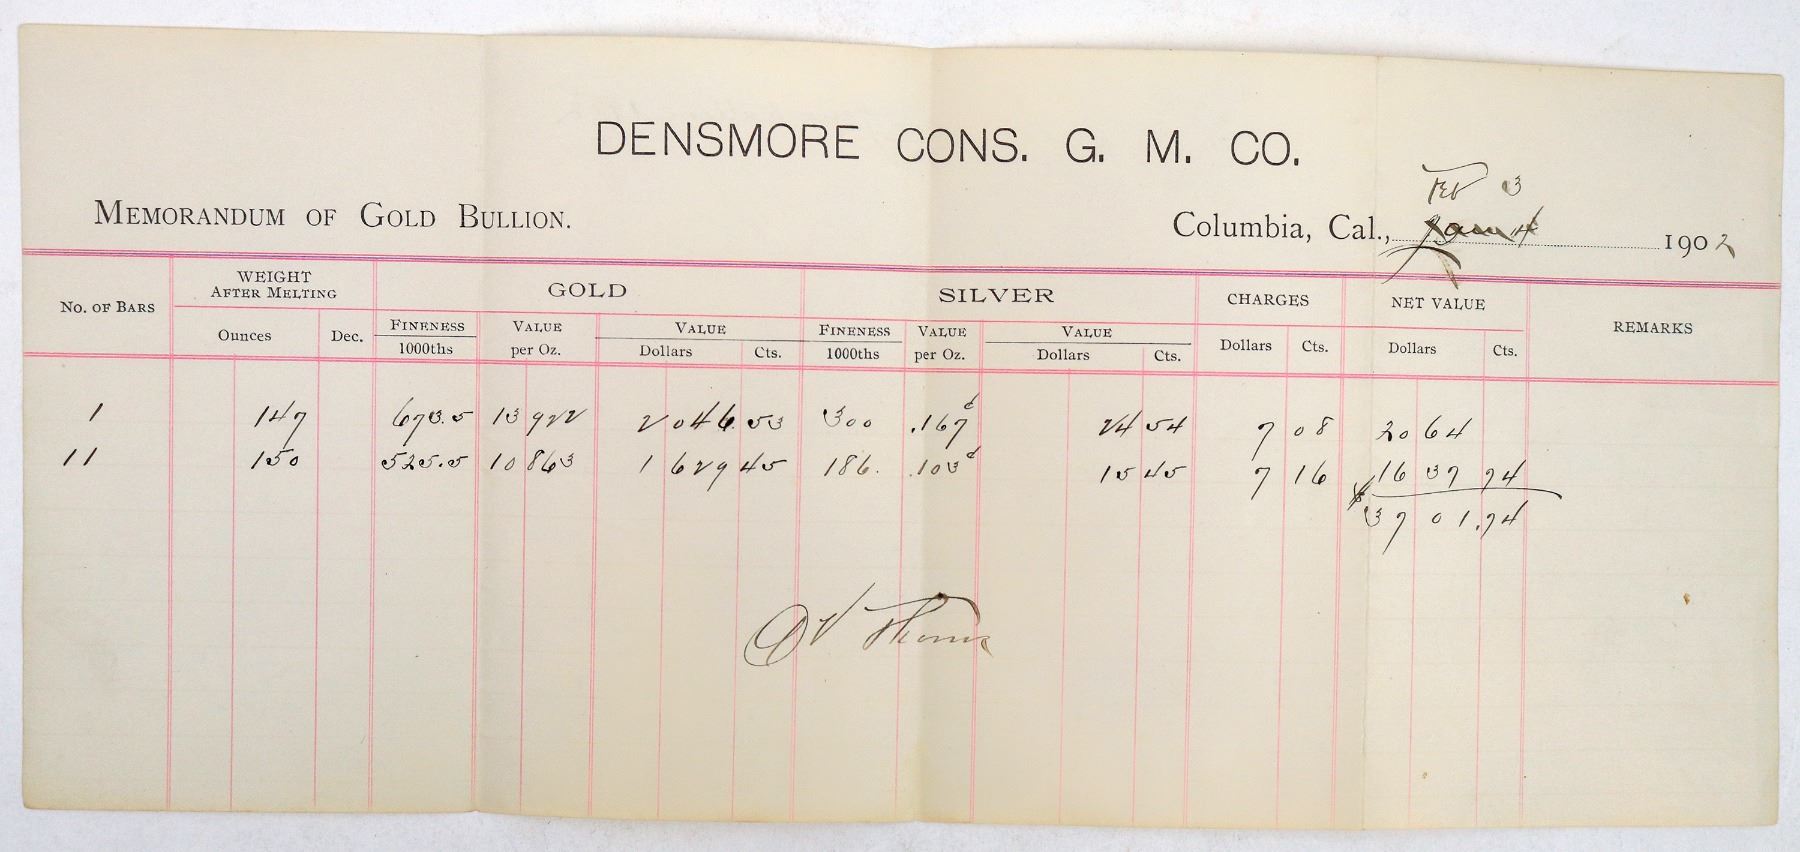 DENSMORE CONS. G. M. CO.
Feb 3
MEMORANDUM OF GOLD BULLION. Columbia, Cal., Jan 4 1902
No. OF BARS WEIGHT AFTER MELTING GOLD SILVER CHARGES NET VALUE REMARKS
Ounces Dec. FINENESS 1000ths VALUE per Oz. VALUE Dollars Cts. FINENESS 1000ths VALUE per Oz. VALUE Dollars Cts. Dollars Cts. Dollars Cts.
1 147 673.5 13 922 2046.53 300 .167¢ 24 54 7 08 2064
11 150 525.5 10 863 1629 45 186. .103¢ 15 45 7 16 1637 74
$3701.74